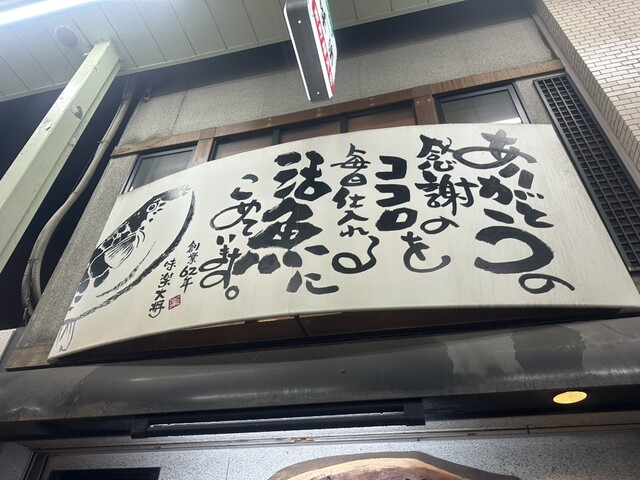 ありがとうの
感謝の
ココロを
毎日仕入れる
活魚に
こめています。
創業62年
味楽大将